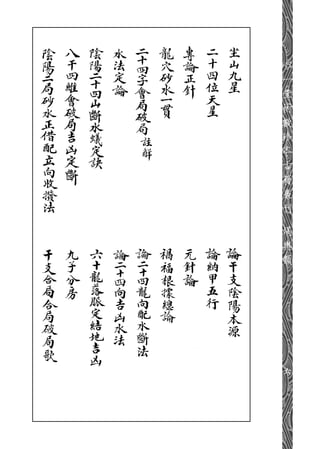 坐山九星
二十四位天星
專論正針
龍穴砂水一貫
二十四字會局破局註解
水法定論
陰陽二十四山斷水蟻定訣
八干四維會破局吉凶定斷
陰陽二局砂水正借配立向收撥法
論干支陰陽本源
論納甲五行
元針論
禍福根據總論
論二十四龍向配水斷法
論二十四向吉凶水法
六十龍落脈定結地吉凶
九子分房
干支合局合局破局歌